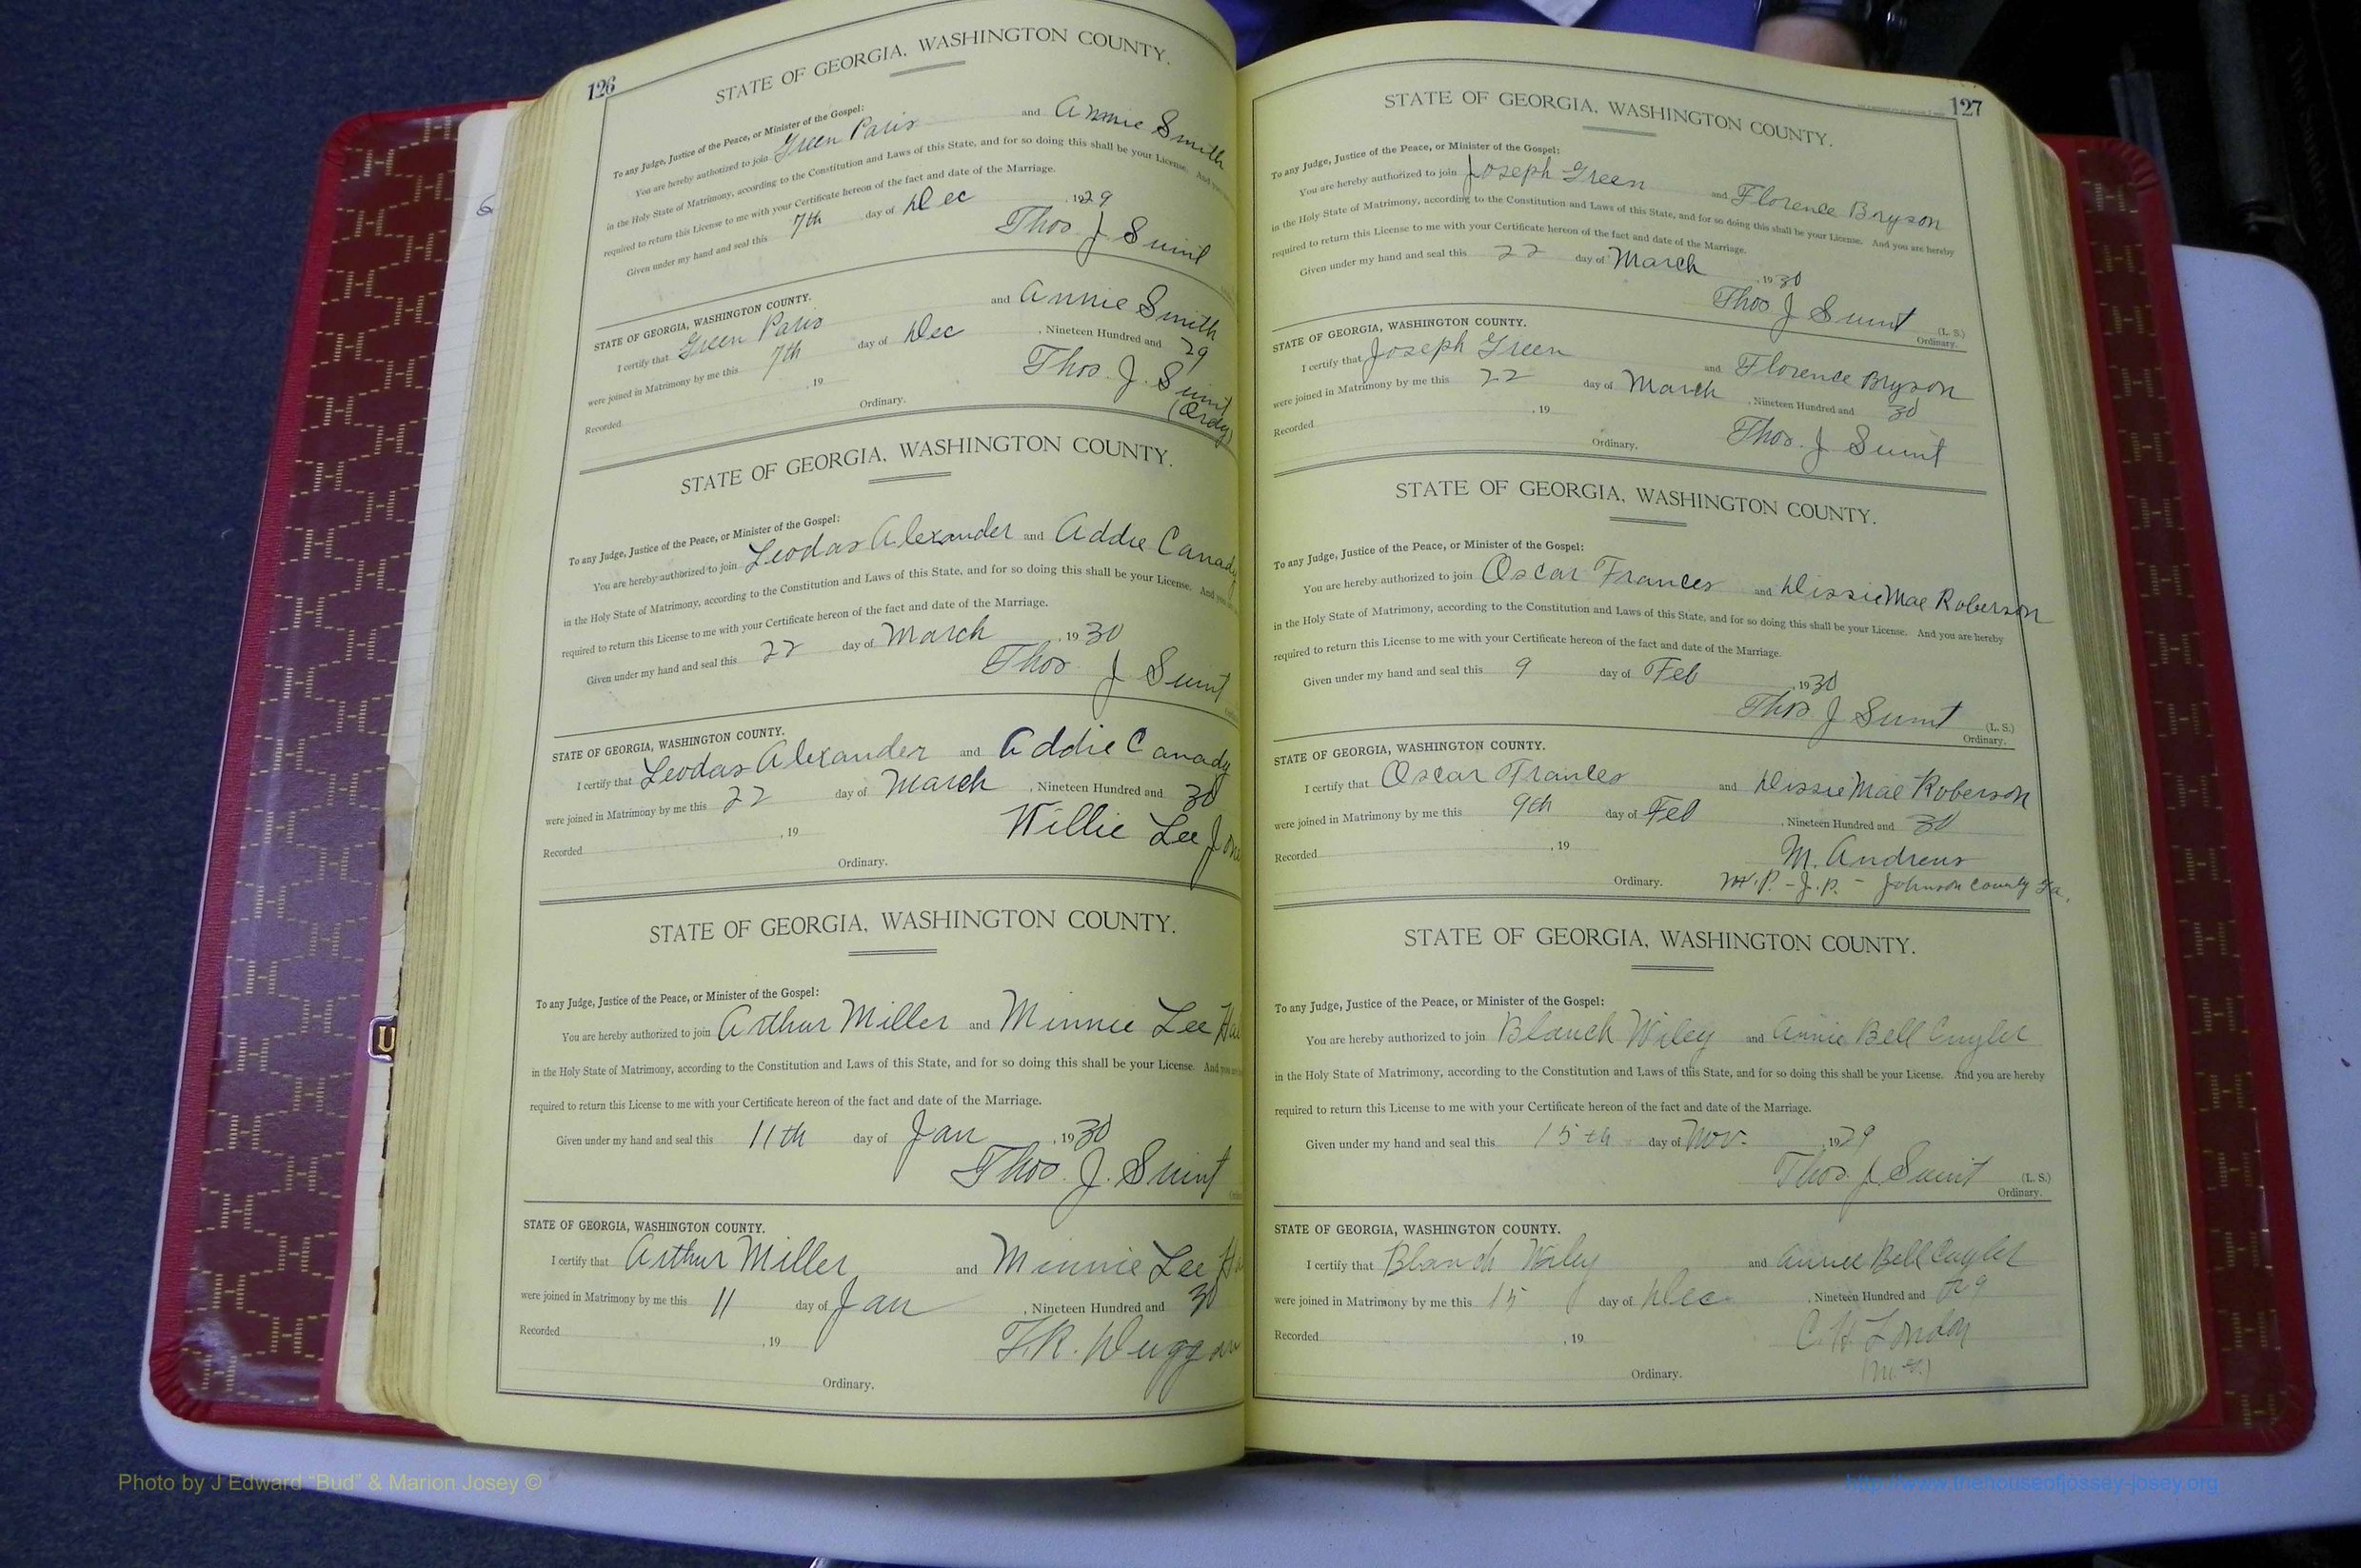 126
STATE OF GEORGIA, WASHINGTON COUNTY.
To any Judge, Justice of the Peace, or Minister of the Gospel:
You are hereby authorized to join Green Paris and Annie Smith
in the Holy State of Matrimony, according to the Constitution and Laws of this State, and for so doing this shall be your License. And you
required to return this License to me with your Certificate hereon of the fact and date of the Marriage.
Given under my hand and seal this 7th day of Dec , 1929
Thos J Swint
STATE OF GEORGIA, WASHINGTON COUNTY.
I certify that Green Paris and Annie Smith
were joined in Matrimony by me this 7th day of Dec , Nineteen Hundred and 29
Recorded , 19 Thos. J. Swint
Ordinary. (Ordy)
STATE OF GEORGIA, WASHINGTON COUNTY.
To any Judge, Justice of the Peace, or Minister of the Gospel:
You are hereby authorized to join Leodas Alexander and Addie Canady
in the Holy State of Matrimony, according to the Constitution and Laws of this State, and for so doing this shall be your License. And you
required to return this License to me with your Certificate hereon of the fact and date of the Marriage.
Given under my hand and seal this 22 day of March , 1930
Thos J Swint
STATE OF GEORGIA, WASHINGTON COUNTY.
I certify that Leodas Alexander and Addie Canady
were joined in Matrimony by me this 22 day of March , Nineteen Hundred and 30
Recorded , 19 Willie Lee
Ordinary.
STATE OF GEORGIA, WASHINGTON COUNTY.
To any Judge, Justice of the Peace, or Minister of the Gospel:
You are hereby authorized to join Arthur Miller and Minnie Lee
in the Holy State of Matrimony, according to the Constitution and Laws of this State, and for so doing this shall be your License. And you
required to return this License to me with your Certificate hereon of the fact and date of the Marriage.
Given under my hand and seal this 11th day of Jan , 1930
Thos. J. Swint
STATE OF GEORGIA, WASHINGTON COUNTY.
I certify that Arthur Miller and Minnie Lee
were joined in Matrimony by me this 11 day of Jan , Nineteen Hundred and 30
Recorded , 19 Duggan
Ordinary.
127
STATE OF GEORGIA, WASHINGTON COUNTY.
To any Judge, Justice of the Peace, or Minister of the Gospel:
You are hereby authorized to join Joseph Green and Florence Bryson
in the Holy State of Matrimony, according to the Constitution and Laws of this State, and for so doing this shall be your License. And you are hereby
required to return this License to me with your Certificate hereon of the fact and date of the Marriage.
Given under my hand and seal this 22 day of March , 1930
Thos J Swint (L. S.)
Ordinary.
STATE OF GEORGIA, WASHINGTON COUNTY.
I certify that Joseph Green and Florence Bryson
were joined in Matrimony by me this 22 day of March , Nineteen Hundred and 30
Recorded , 19 Thos. J Swint
Ordinary.
STATE OF GEORGIA, WASHINGTON COUNTY.
To any Judge, Justice of the Peace, or Minister of the Gospel:
You are hereby authorized to join Oscar Frances and Dissie Mae Roberson
in the Holy State of Matrimony, according to the Constitution and Laws of this State, and for so doing this shall be your License. And you are hereby
required to return this License to me with your Certificate hereon of the fact and date of the Marriage.
Given under my hand and seal this 9 day of Feb , 1930
Thos. J Swint (L. S.)
Ordinary.
STATE OF GEORGIA, WASHINGTON COUNTY.
I certify that Oscar Frances and Dissie Mae Roberson
were joined in Matrimony by me this 9th day of Feb , Nineteen Hundred and 30
Recorded , 19 M. Andrews
Ordinary. J.P. - Johnson County Ga.
STATE OF GEORGIA, WASHINGTON COUNTY.
To any Judge, Justice of the Peace, or Minister of the Gospel:
You are hereby authorized to join Blanch Wiley and Annie Bell Cuyler
in the Holy State of Matrimony, according to the Constitution and Laws of this State, and for so doing this shall be your License. And you are hereby
required to return this License to me with your Certificate hereon of the fact and date of the Marriage.
Given under my hand and seal this 15th day of Nov. , 1929
Thos. J. Swint (L. S.)
Ordinary.
STATE OF GEORGIA, WASHINGTON COUNTY.
I certify that Blanch Wiley and Annie Bell Cuyler
were joined in Matrimony by me this 15 day of Dec. , Nineteen Hundred and 29
Recorded , 19 C. H. London
Ordinary.
Photo by J Edward "Bud" & Marion Josey ©
http://www.thehouseofjossey-josey.org